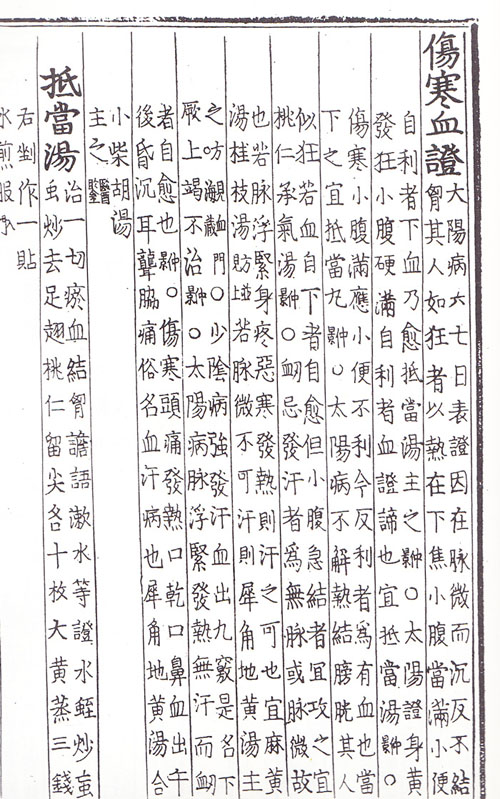 傷寒血證
大陽病六七日表證因在脉微而沉反不結
胷其人如狂者以熱在下焦小腹當滿小便
自利者下血乃愈抵當湯主之仲景○太陽證身黃
發狂小腹硬滿自利者血證諦也宜抵當湯仲景○
傷寒小腹滿應小便不利今反利者爲有血也當
下之宜抵當丸仲景○太陽病不解熱結膀胱其人
似狂若血自下者自愈但小腹急結者宜攻之宜
桃仁承氣湯仲景○衂忌發汗者爲無脉或脉微故
也若脉浮緊身疼惡寒發熱則汗之可也宜麻黃
湯桂枝湯若脉微不可汗則犀角地黃湯主
之方見血門○少陰病強發汗血出九竅是名下
厥上竭不治仲景○太陽病脉浮緊發熱無汗而衂
者自愈也仲景○傷寒頭痛發熱口乾口鼻血出午
後昏沉耳聾脇痛俗名血汗病也犀角地黃湯合
小柴胡湯
主之醫鑑
抵當湯
治一切瘀血結胷譫語漱水等證水蛭炒䖟
虫炒去足翅桃仁留尖各十枚大黃蒸三錢
右剉作一貼
水煎服